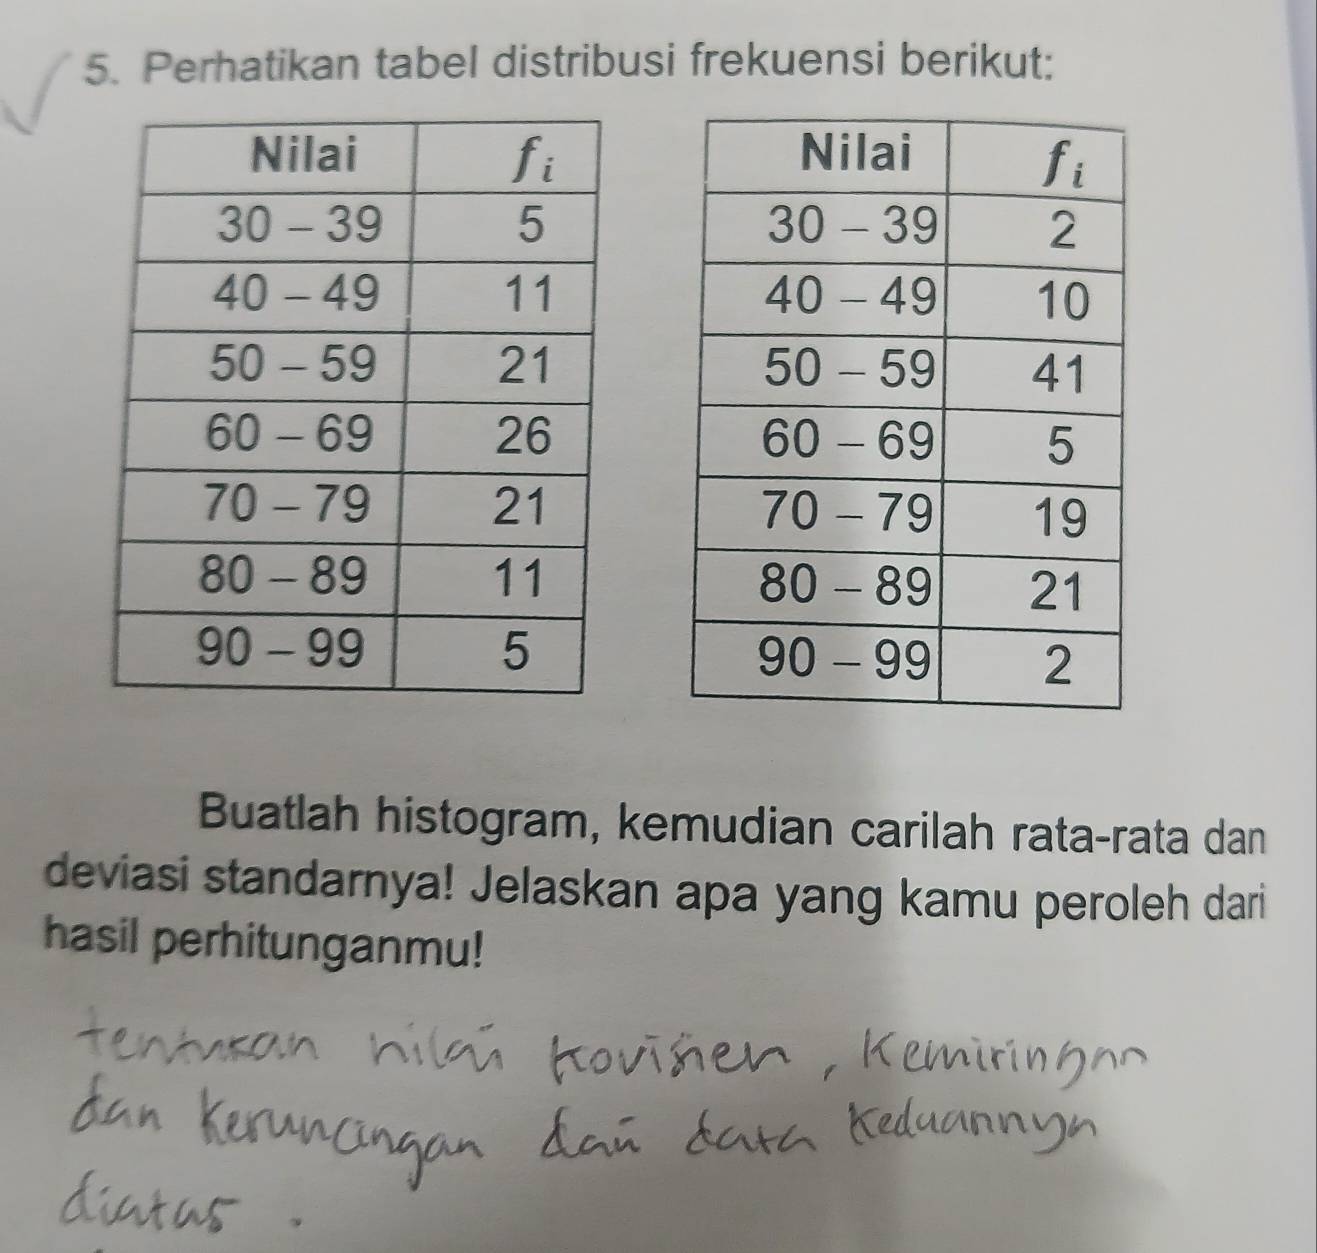 5. Perhatikan tabel distribusi frekuensi berikut:
Nilai fi
30 – 39 5
40 – 49 11
50 – 59 21
60 – 69 26
70 – 79 21
80 – 89 11
90 – 99 5
Nilai fi
30 – 39 2
40 – 49 10
50 – 59 41
60 – 69 5
70 – 79 19
80 – 89 21
90 – 99 2
Buatlah histogram, kemudian carilah rata-rata dan
deviasi standarnya! Jelaskan apa yang kamu peroleh dari
hasil perhitunganmu!
tentukan nilai kovisien, Kemiringan
dan keruncingan dari data keduannya
diatas.